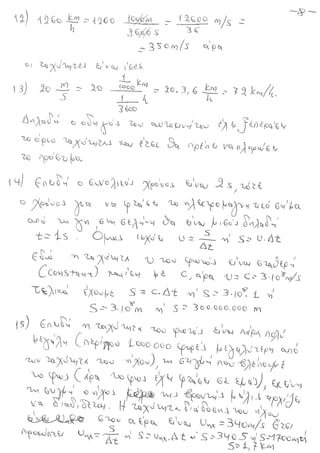 -8-
12) 1260 km/h = 1260 1000m/3600s = 12600/36 m/s =
= 350 m/s άρα
οι ταχύτητες είναι ίσες.
13) 20 m/s = 20 (1/1000 km)/(1/3600 h) = 20·3,6 km/h = 72 km/h.
Δηλαδή ο οδηγός του αυτοκινήτου έχει ξεπεράσει
το όριο ταχύτητας και έτσι θα πρέπει να πληρώσει
το πρόστιμο.
14) Επειδή ο συνολικός χρόνος είναι 2s, τότε
ο χρόνος για να φτάσει το ηλεκτρομαγνητικό σήμα
από τη γη στη σελήνη θα είναι μισός δηλαδή
t = 1s. Όμως ισχύει υ = S/Δt ή S = υ·Δt
Εδώ η ταχύτητα υ του φωτός είναι σταθερή
(constant) και ίση με c, άρα υ = c = 3·10⁸ m/s
Τελικά έχουμε S = c·Δt ή S = 3·10⁸·1 ή
S = 3·10⁸ m ή S = 300.000.000 m
15) Επειδή η ταχύτητα του φωτός είναι πάρα πολύ
μεγάλη (περίπου 1.000.000 φορές μεγαλύτερη από
την ταχύτητα του ήχου) τη στιγμή που βλέπουμε
το φως (άρα το φως έχει φτάσει σε εμάς), εκείνη
τη στιγμή ο ήχος της βροντής μόλις αρχίζει
να διαδίδεται. Η ταχύτητα διάδοσης του ήχου
στον αέρα είναι υηχ = 340 m/s έτσι
προκύπτει υηχ = S/Δt ή S = υηχ·Δt ή S = 340·5 ή S = 1700m ή
S = 1,7 km